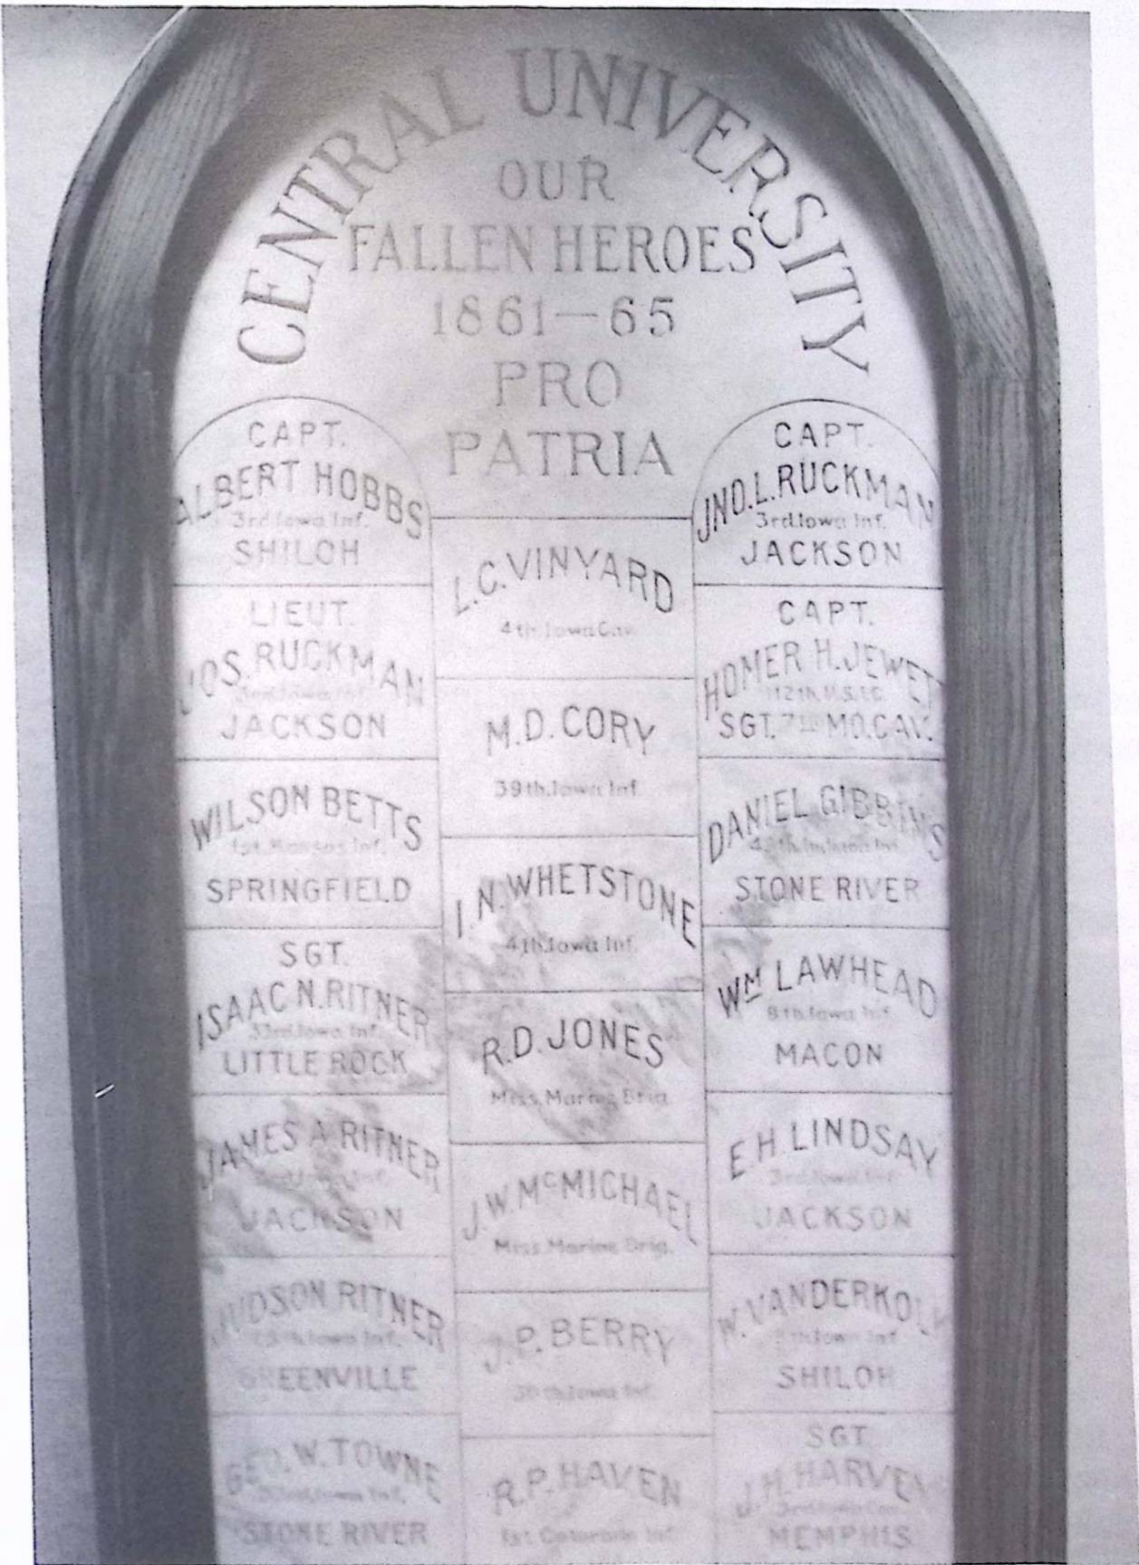 CENTRAL UNIVERSITY
OUR
FALLEN HEROES
1861—65
PRO
PATRIA
CAPT.
ALBERT HOBBS
3rd. Iowa Inf.
SHILOH
LIEUT.
JOS. RUCKMAN
3rd. Iowa Inf.
JACKSON
WILSON BETTS
1st. Kansas Inf.
SPRINGFIELD
SGT.
ISAAC N. RITNER
33rd. Iowa Inf.
LITTLE ROCK
JAMES A. RITNER
JACKSON
JUDSON RITNER
Iowa Inf.
GREENVILLE
GEO. W. TOWNE
Iowa Inf.
STONE RIVER
L. C. VINYARD
4th. Iowa Cav.
M. D. CORY
39th. Iowa Inf.
I. N. WHETSTONE
4th. Iowa Inf.
R. D. JONES
Miss. Marine Brig.
J. W. McMICHAEL
Miss. Marine Brig.
J. P. BERRY
Iowa Inf.
R. P. HAVEN
1st. Colorado Inf.
CAPT.
JNO. L. RUCKMAN
3rd. Iowa Inf.
JACKSON
CAPT.
HOMER H. JEWETT
SGT. 7TH MO. CAV.
DANIEL GIBBINS
STONE RIVER
WM LAWHEAD
8th. Iowa Inf.
MACON
E. H. LINDSAY
3rd. Iowa Inf.
JACKSON
W. VANDERKOLK
Iowa Inf.
SHILOH
SGT.
J. H. HARVEY
3rd. Iowa Cav.
MEMPHIS